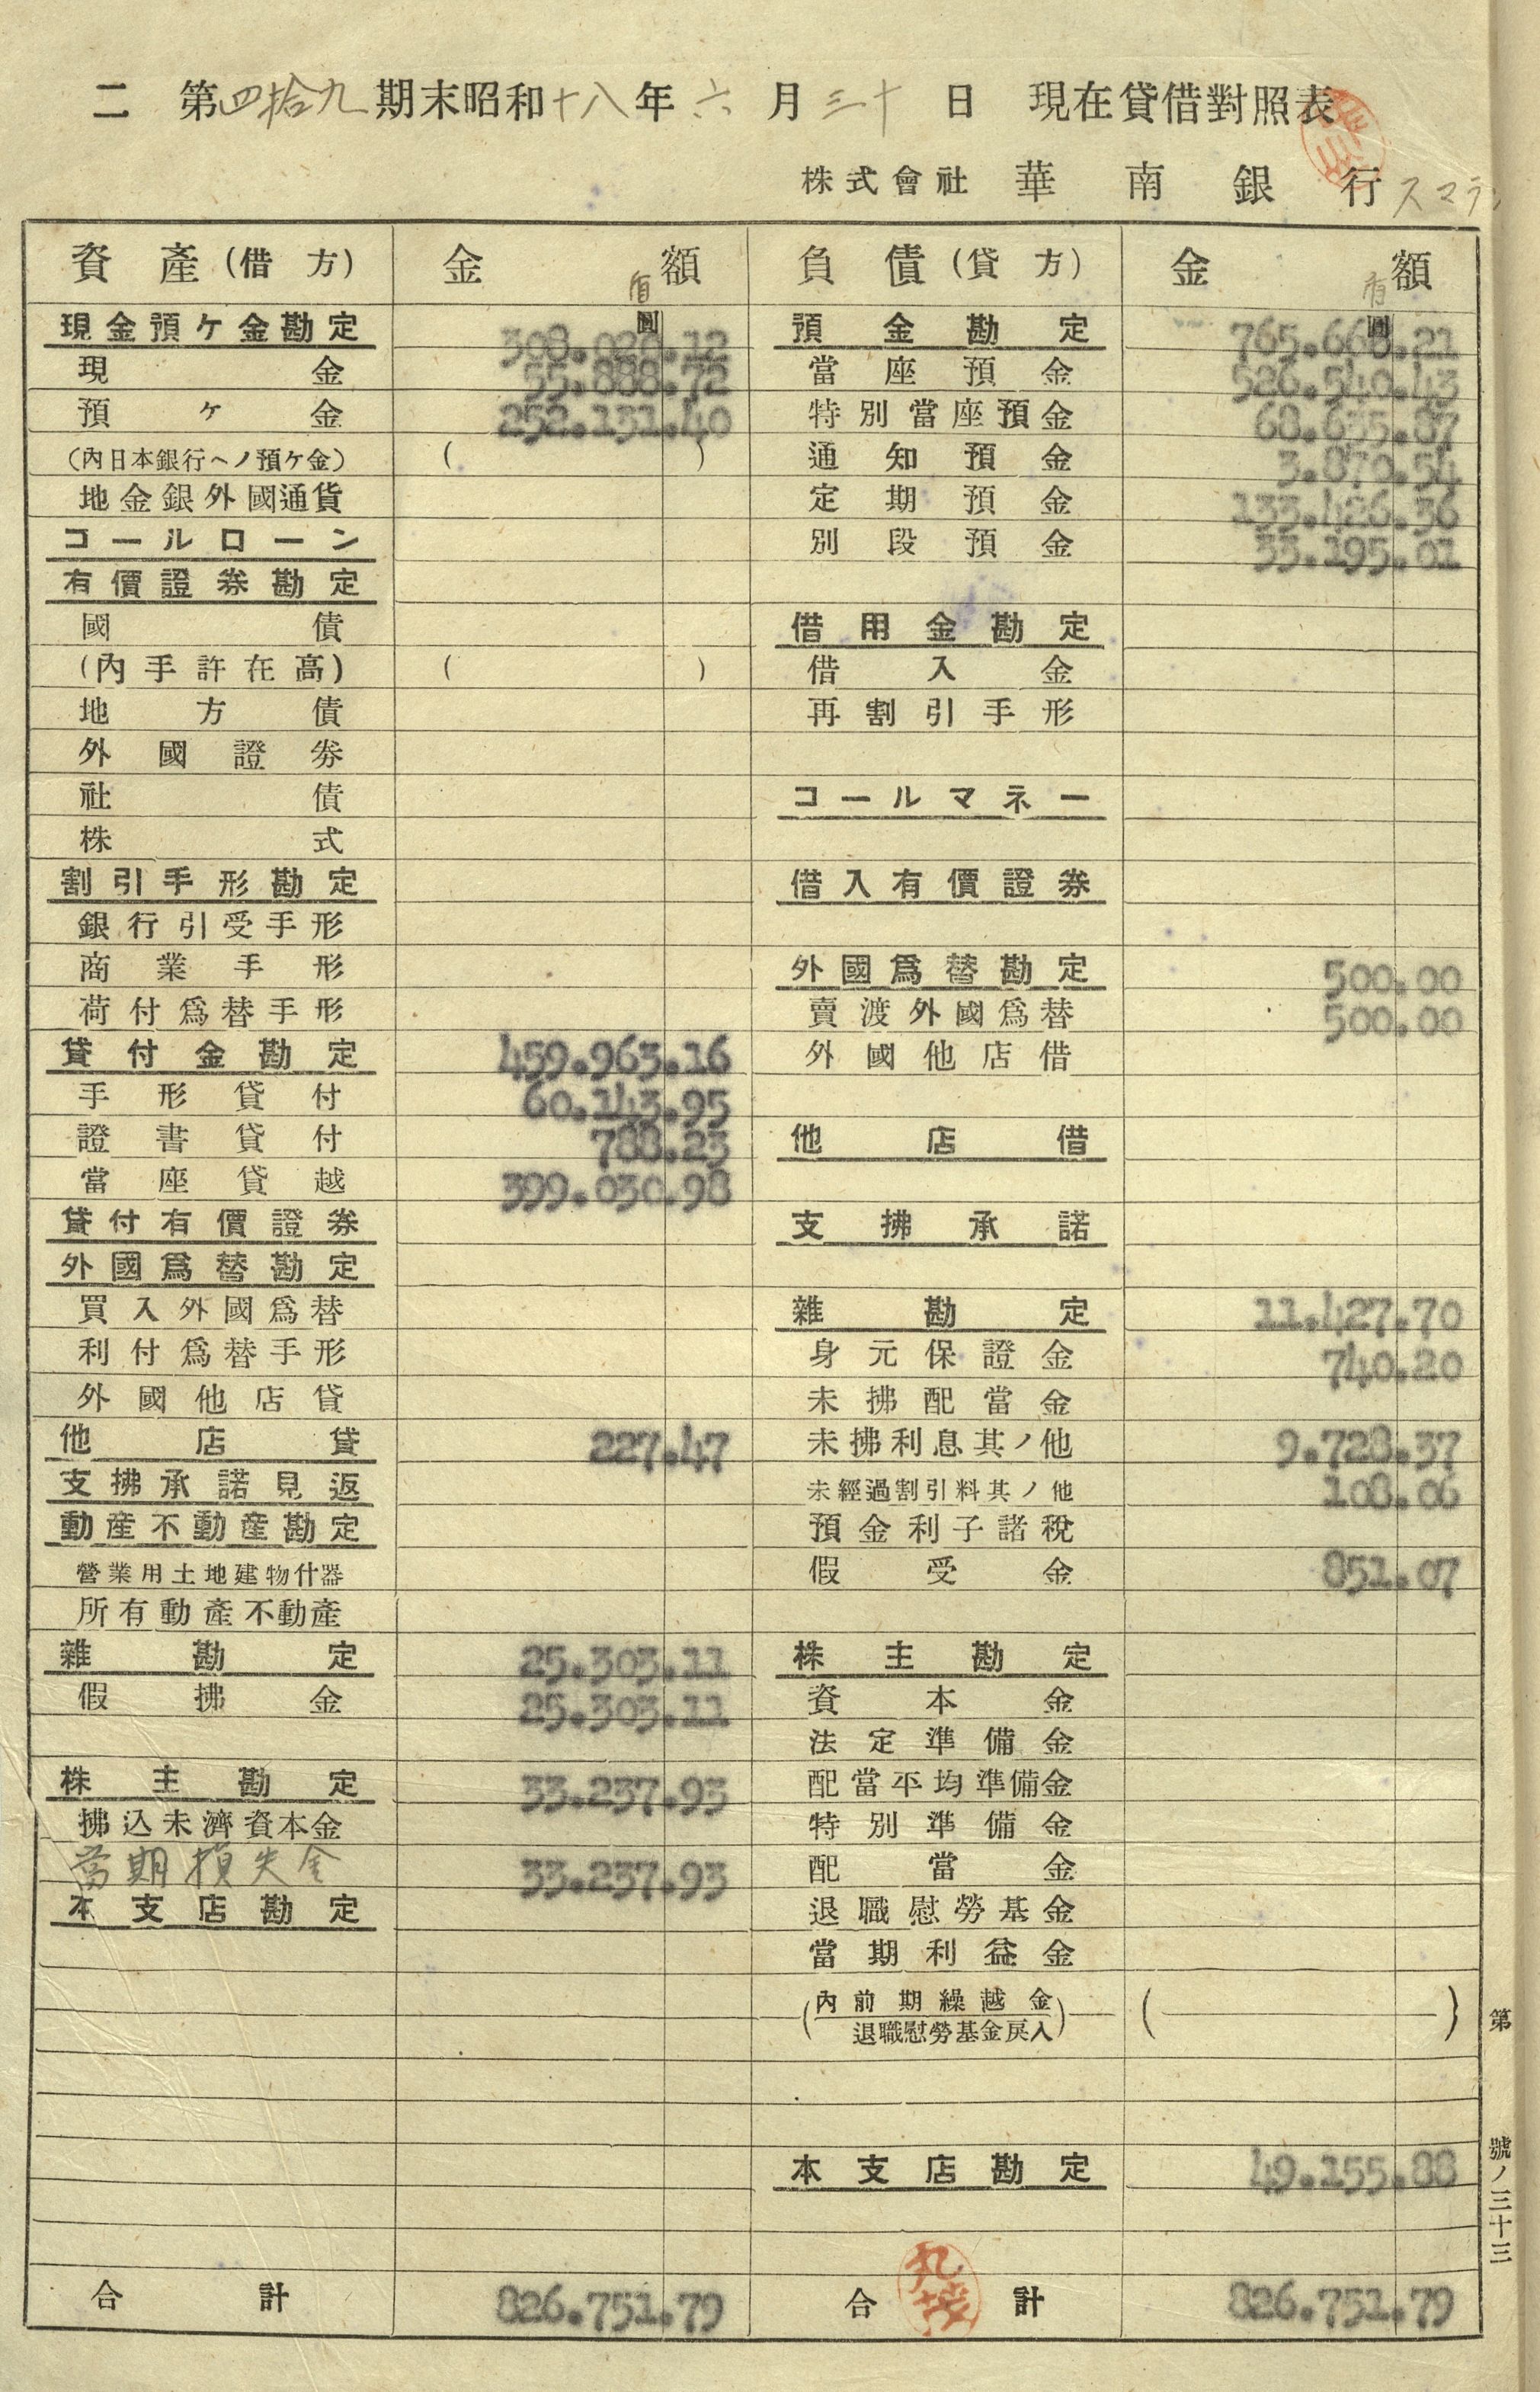 二 第四拾九期末昭和十八年六月三十日 現在貸借對照表
株式會社 華南銀行 スマラン
資產(借方) 金額 負債(貸方) 金額
盾 盾
現金預ケ金勘定 308.020.12 預金勘定 765.668.21
現金 55.888.72 當座預金 526.540.43
預ケ金 252.131.40 特別當座預金 68.635.87
(內日本銀行ヘノ預ケ金) ( ) 通知預金 3.870.54
地金銀外國通貨 定期預金 133.426.36
コールローン 別段預金 33.195.01
有價證券勘定
國債 借用金勘定
(內手許在高) ( ) 借入金
地方債 再割引手形
外國證券
社債 コールマネー
株式
割引手形勘定 借入有價證券
銀行引受手形
商業手形 外國爲替勘定 500.00
荷付爲替手形 賣渡外國爲替 500.00
貸付金勘定 459.963.16 外國他店借
手形貸付 60.143.95
證書貸付 788.23 他店借
當座貸越 399.030.98
貸付有價證券 支拂承諾
外國爲替勘定
買入外國爲替 雜勘定 11.427.70
利付爲替手形 身元保證金 740.20
外國他店貸 未拂配當金
他店貸 227.47 未拂利息其ノ他 9.728.37
支拂承諾見返 未經過割引料其ノ他 108.06
動產不動產勘定 預金利子諸稅
營業用土地建物什器 假受金 851.07
所有動產不動產
雜勘定 25.303.11 株主勘定
假拂金 25.303.11 資本金
法定準備金
株主勘定 33.237.93 配當平均準備金
拂込未濟資本金 特別準備金
當期損失金 33.237.93 配當金
本支店勘定 退職慰勞基金
當期利益金
(內前期繰越金 ( )
退職慰勞基金戾入)
本支店勘定 49.155.88
合計 826.751.79 合計 826.751.79
第 號ノ三十三